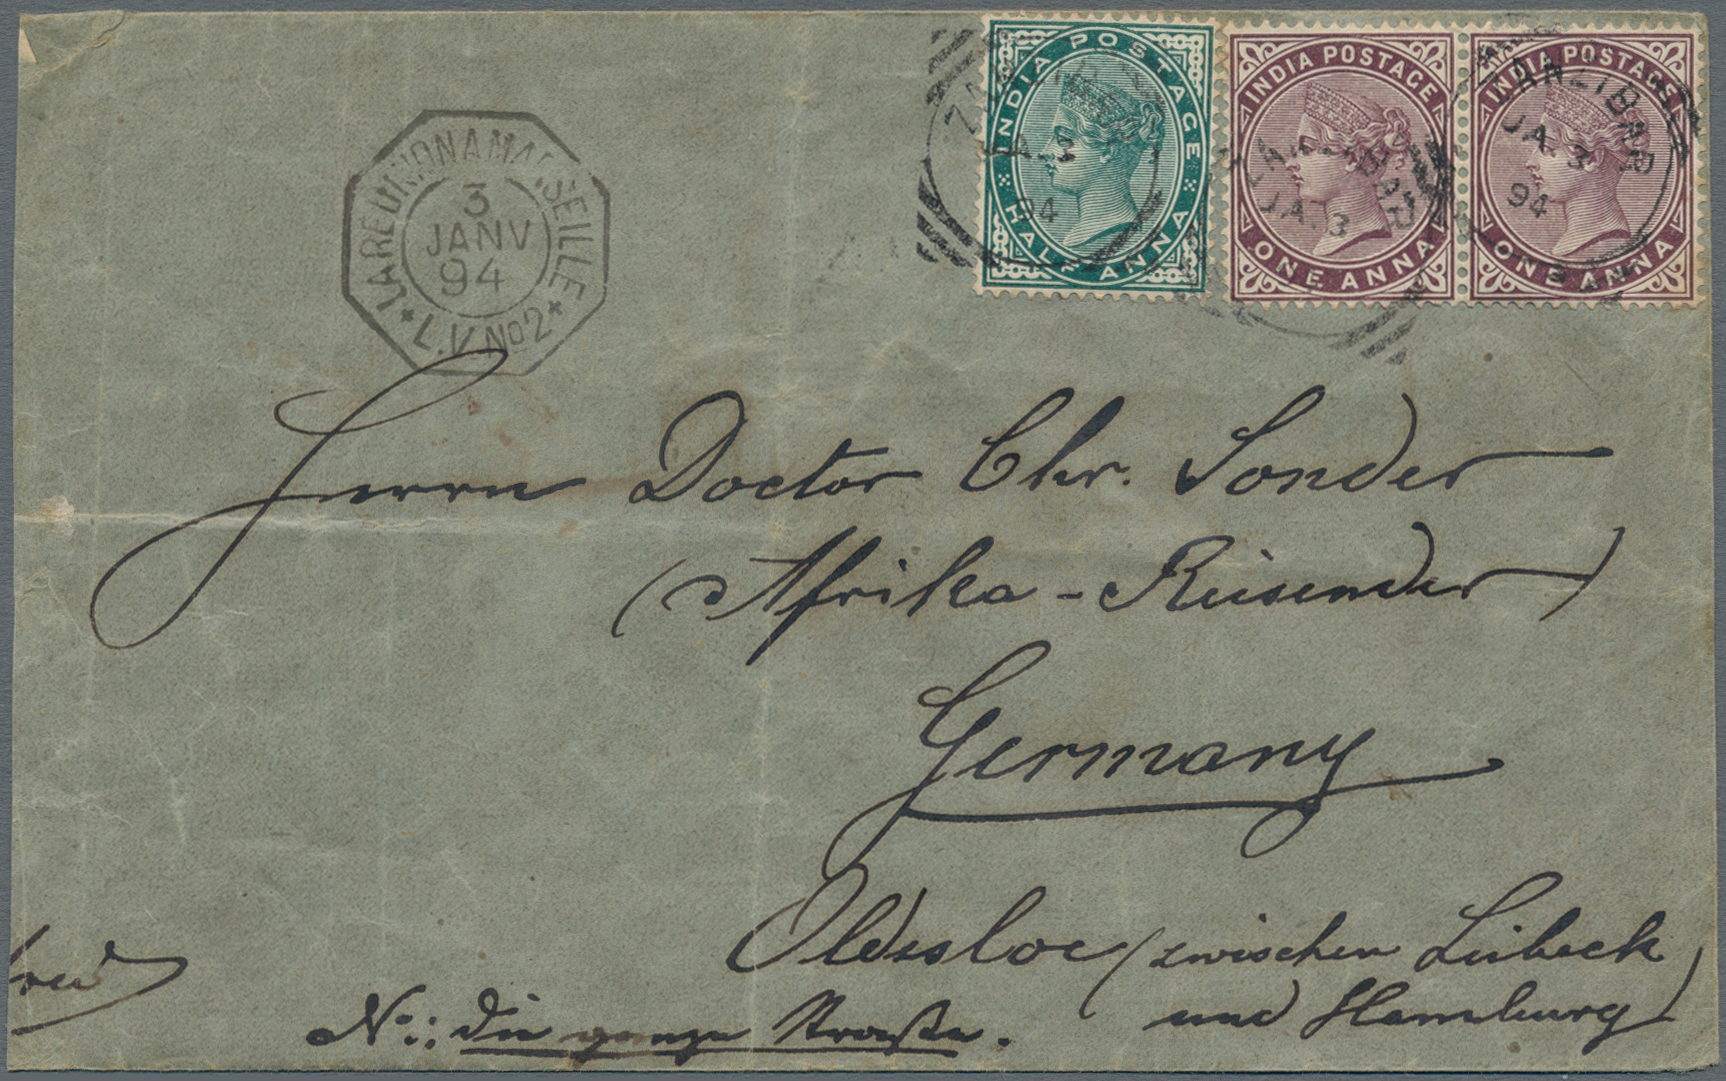 INDIA POSTAGE
HALF ANNA
INDIA POSTAGE
ONE ANNA
INDIA POSTAGE
ONE ANNA
ZANZIBAR
JA. 3
94
ZANZIBAR
JA. 3
ZANZIBAR
JA. 3
94
LA REUNION A MARSEILLE
3
JANV
94
*L.V. No2*
Herrn Doctor Chr. Sonder
(Afrika-Reisender)
Germany
Oldesloe (zwischen Lübeck
und Hamburg)
No.: die ganze Straße.